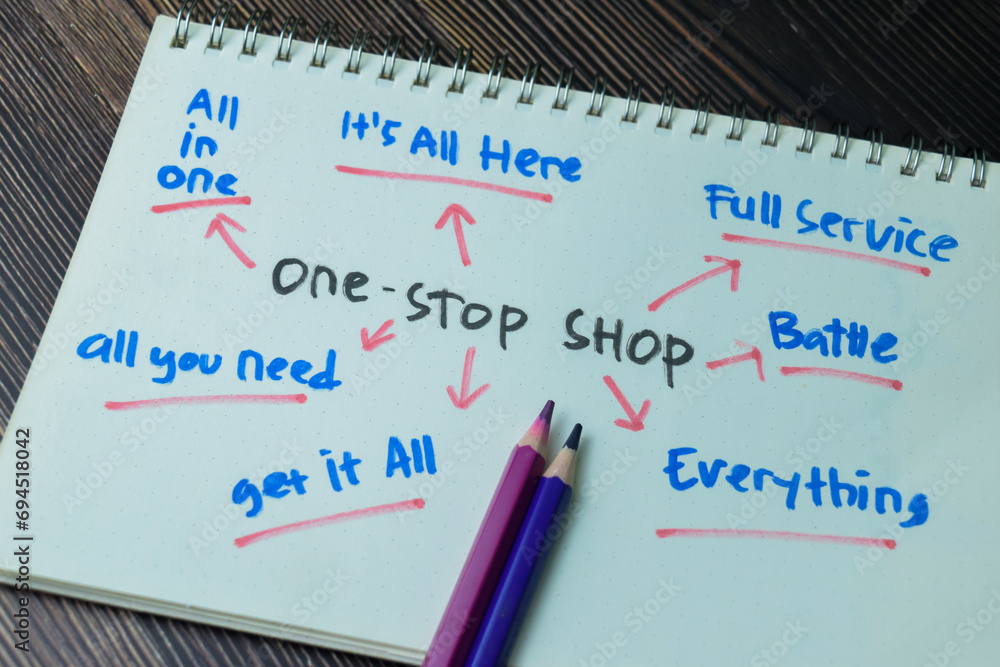 All
in
one
It's All Here
Full Service
One-STOP SHOP
Battle
all you need
get it All
Everything
Adobe Stock | #694518042